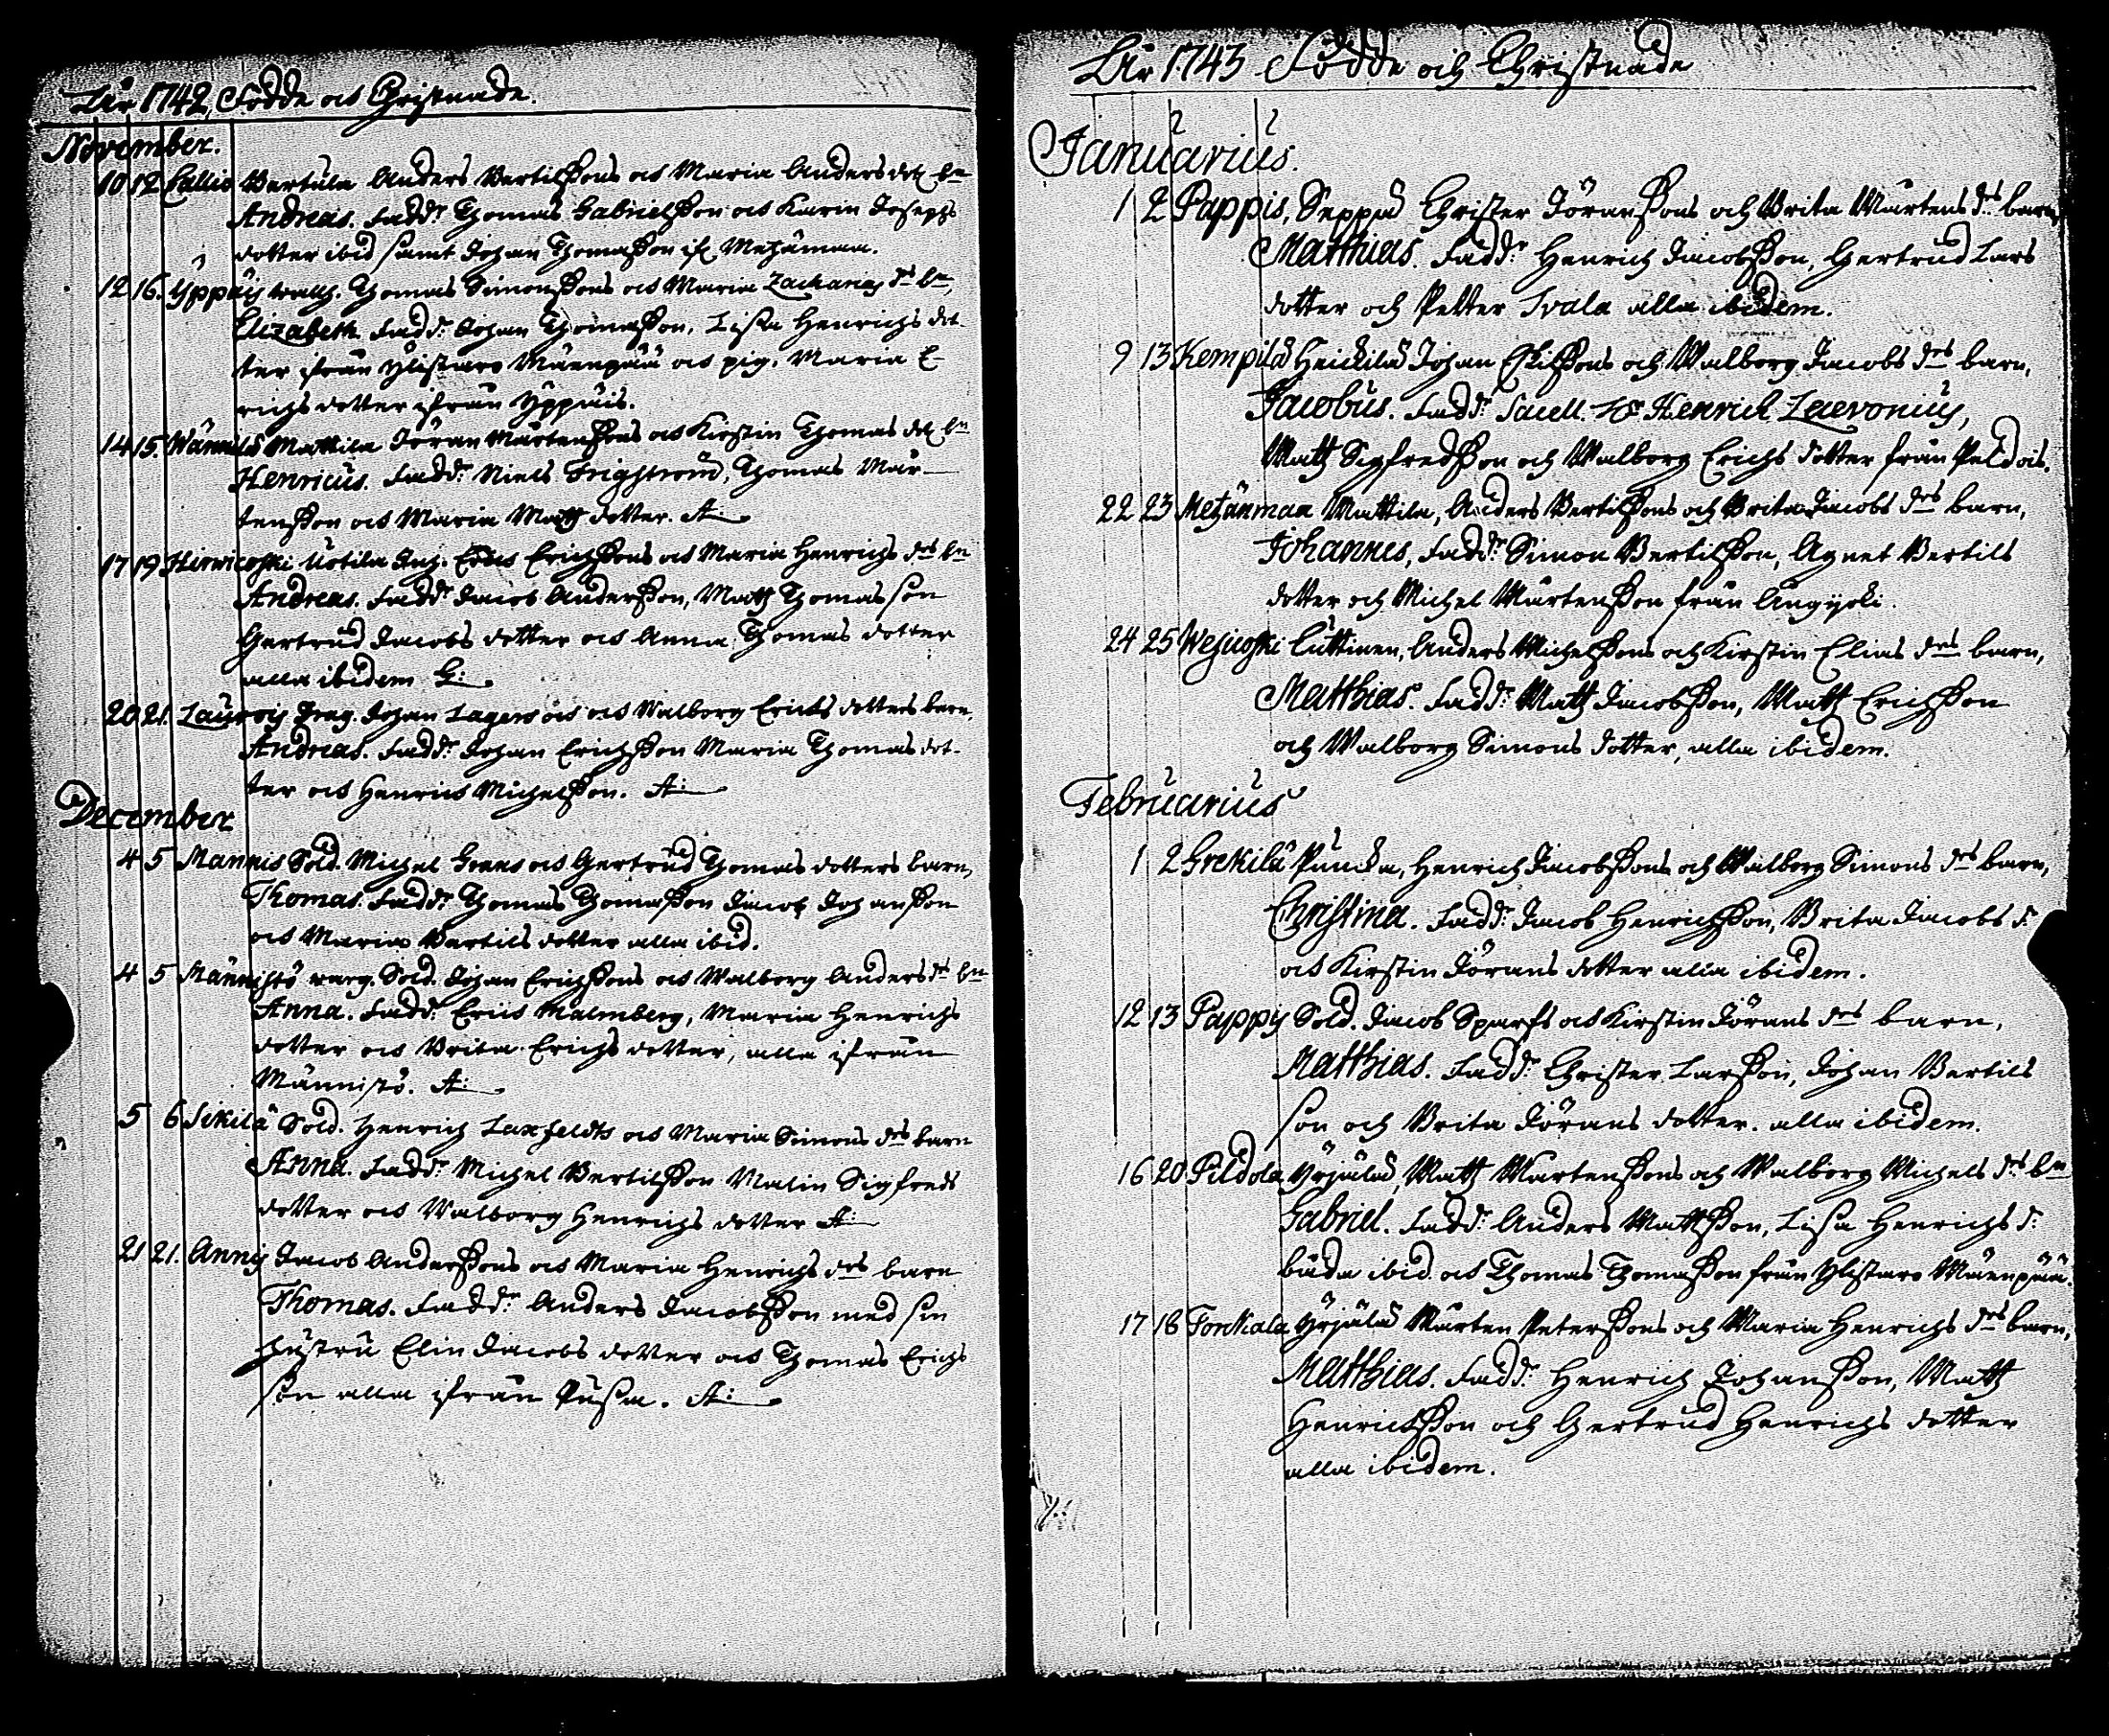 År 1742, Födde och Christnade.
November.
10 12 Callio Bertula Anders Bertilssons och Maria Anders dott. bn
Andreas. Fadd:r Thomas Gabrielsson och Karin Josephs
dotter ibid samt Johan Thomasson if. Metzämaa.
12 16. Yppäis Thomas Simonssons och Maria Zacharias d:r bn,
Elizabeth Fadd:r Johan Thomasson, Lisa Henrichs dot-
ter ifrån Ylistaro Mäenpää och pig. Maria E-
richs dotter ifrån Yppäis.
14 15. Wännilä Mattila Jöran Mårtenssons och Kirstin Thomas dott. bn
Henricus. Fadd:r Niels Frigström, Thomas Mår-
tensson och Maria Matts dotter. A:
17 19 Hirwicoski Uotila Erics Erichssons och Maria Henrichs d:rs bn
Andreas. Fadd:r Jacob Andersson, Matts Thomasson
Gertrud Jacobs dotter och Anna Thomas dotter
alla ibidem
20 21. Laurois Drag. Johan Lagers och Walborg Erichs dotters barn,
Andreas. Fadd:r Johan Erichsson Maria Thomas dot-
ter och Henrich Michelsson. A:
December
4 5 Mannis Sold. Michel Grans och Gertrud Thomas dotters barn,
Thomas. Fadd:r Thomas Thomasson Jacob Johansson
och Maria Bertils dotter alla ibid.
4 5 Männistö warg. Sold. Johan Erichssons och Walborg Anders d:r bn
Anna. Fadd:r Erich Malmberg, Maria Henrichs
dotter och Brita Erichs dotter, alla ifrån
Männistö. A:
5 6 Sikilä Sold. Henrich Laxfeldts och Maria Simons d:rs barn
Anna. Fadd:r Michel Bertilsson Malin Sigfreds
dotter och Walborg Henrichs dotter A:
21 21. Annis Jacob Anderssons och Maria Henrichs d:rs barn
Thomas. Fadd:r Anders Jacobsson med sin
hustru Elin Jacobs dotter och Thomas Erichs
son alla ifrån Pusa. A:
År 1743 Födde och Christnade
Januarius.
1 2 Pappis, Seppä Christer Jöranssons och Brita Mårtens d:rs barn,
Matthias. Fadd:r Henrich Jacobsson, Gertrud Lars
dotter och Petter Svala alla ibidem.
9 13 Kempilä Heickilä Johan Eskilssons och Walborg Jacobs d:rs barn,
Jacobus. Fadd:r Sacell. Hr Henrich Laevonius,
Matts Sigfredsson och Walborg Erichs dotter från Peldois.
22 23 Metzänmaa Mattila, Anders Bertilssons och Brita Jacobs d:rs barn,
Johannes, Fadd:r Simon Bertilsson, Agnet Bertils
dotter och Michel Mårtensson från Ångijoki.
24 25 Wesicoski Luttinen, Anders Michelssons och Kirstin Elias d:rs barn,
Matthias. Fadd:r Matts Jacobsson, Matts Erichsson
och Walborg Simons dotter, alla ibidem.
Februarius
1 2 Grekilä Puncka, Henrich Jacobssons och Walborg Simons d:rs barn,
Christina. Fadd:r Jacob Henrichsson, Brita Jacobs d:r
och Kirstin Jörans dotter alla ibidem.
12 13 Pappis Sold. Jacob Sparfs och Kirstin Jörans d:rs barn,
Matthias. Fadd:r Christer Larsson, Johan Bertils
son och Brita Jörans dotter. alla ibidem.
16 20 Pildola Yrjälä, Matts Mårtenssons och Walborg Michels d:rs bn
Gabriel. Fadd:r Anders Mattsson, Lisa Henrichs d:r
båda ibid. och Thomas Thomasson från Ylistaro Mäenpää.
17 18 Forckala Yrjälä Mårten Peterssons och Maria Henrichs d:rs barn,
Matthias. Fadd:r Henrich Johansson, Matts
Henrichsson och Gertrud Henrichs dotter
alla ibidem.